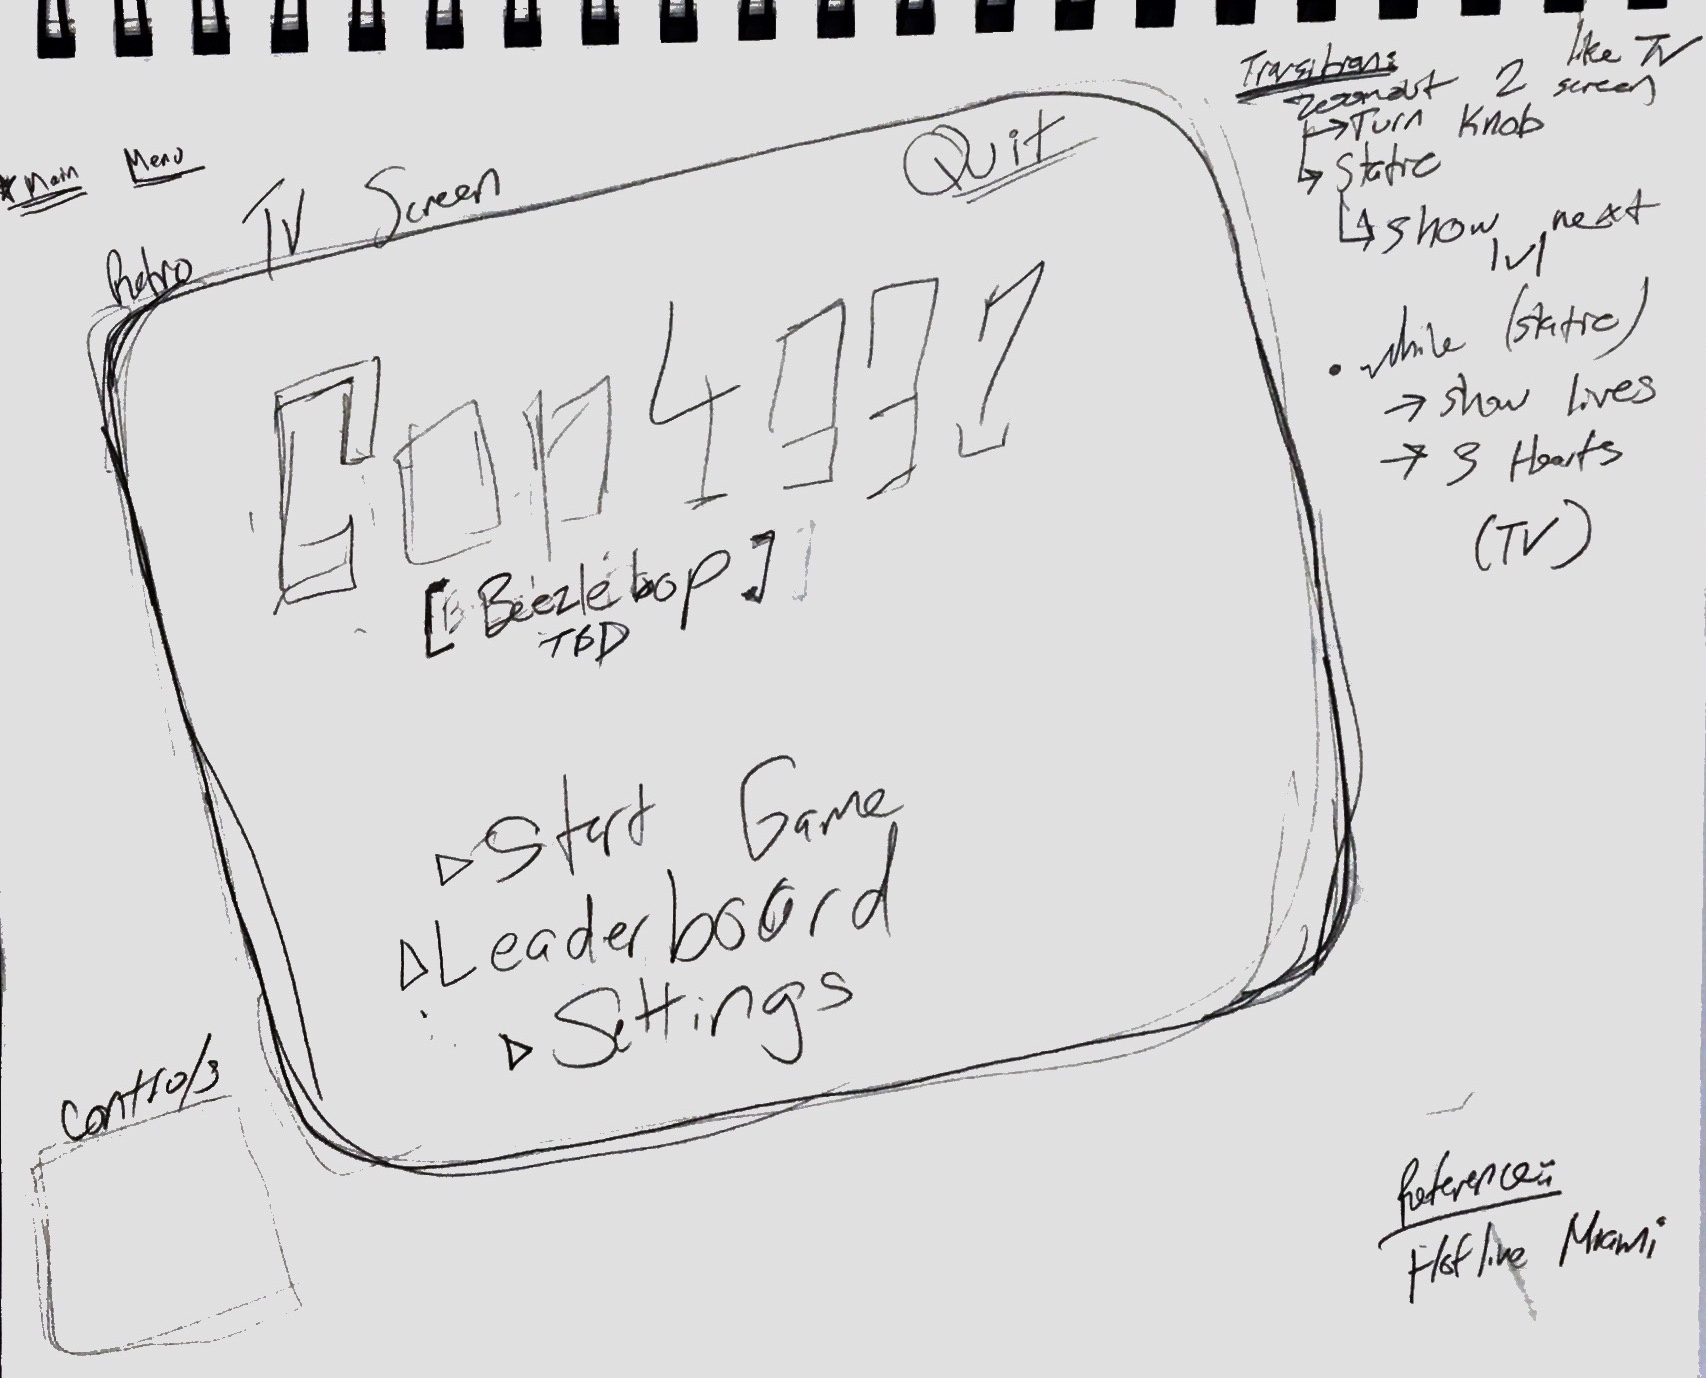 * Main Menu
Retro TV Screen
Quit
Cop4331
[Beezlebop]
TBD
▷ Start Game
▷ Leaderboard
▷ Settings
Controls
Transitions
zoomout 2 like TV screen
↳ Turn Knob
↳ Static
↳ show next lvl
• while (static)
→ show lives
→ 3 Hearts
(TV)
References:
Hotline Miami